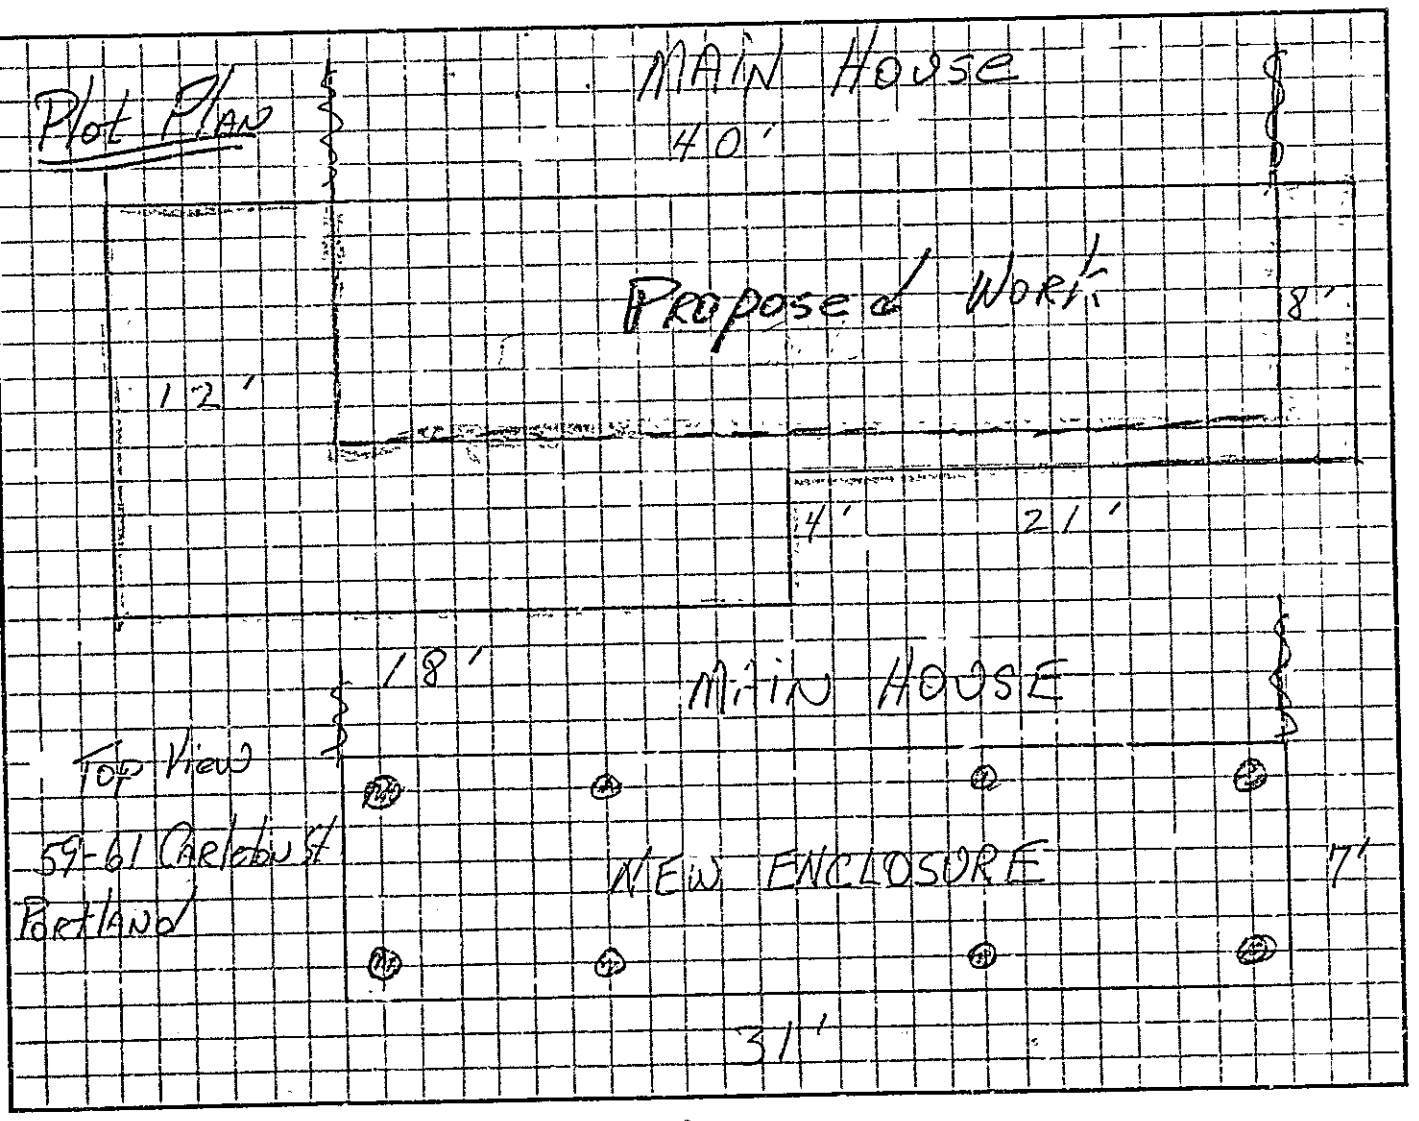 Plot Plan
MAIN House
40'
Proposed Work
8'
12'
4' 21'
18'
MAIN HOUSE
Top View
59-61 St
Portland
NEW ENCLOSURE
7'
31'